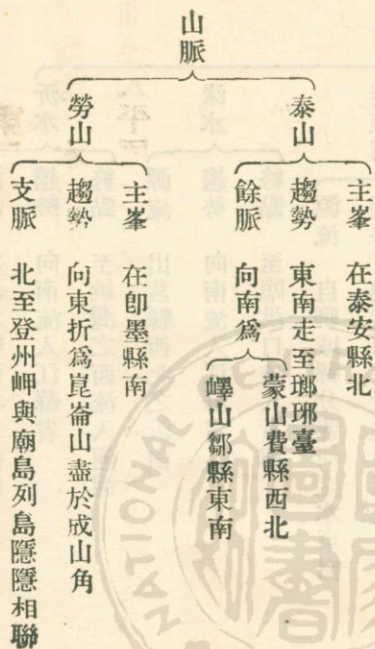 山脈
泰山
主峯 在泰安縣北
趨勢 東南走至瑯琊臺
餘脈 向南爲
蒙山費縣西北
嶧山鄒縣東南
勞山
主峯 在卽墨縣南
趨勢 向東折爲崑崙山盡於成山角
支脈 北至登州岬與廟島列島隱隱相聯